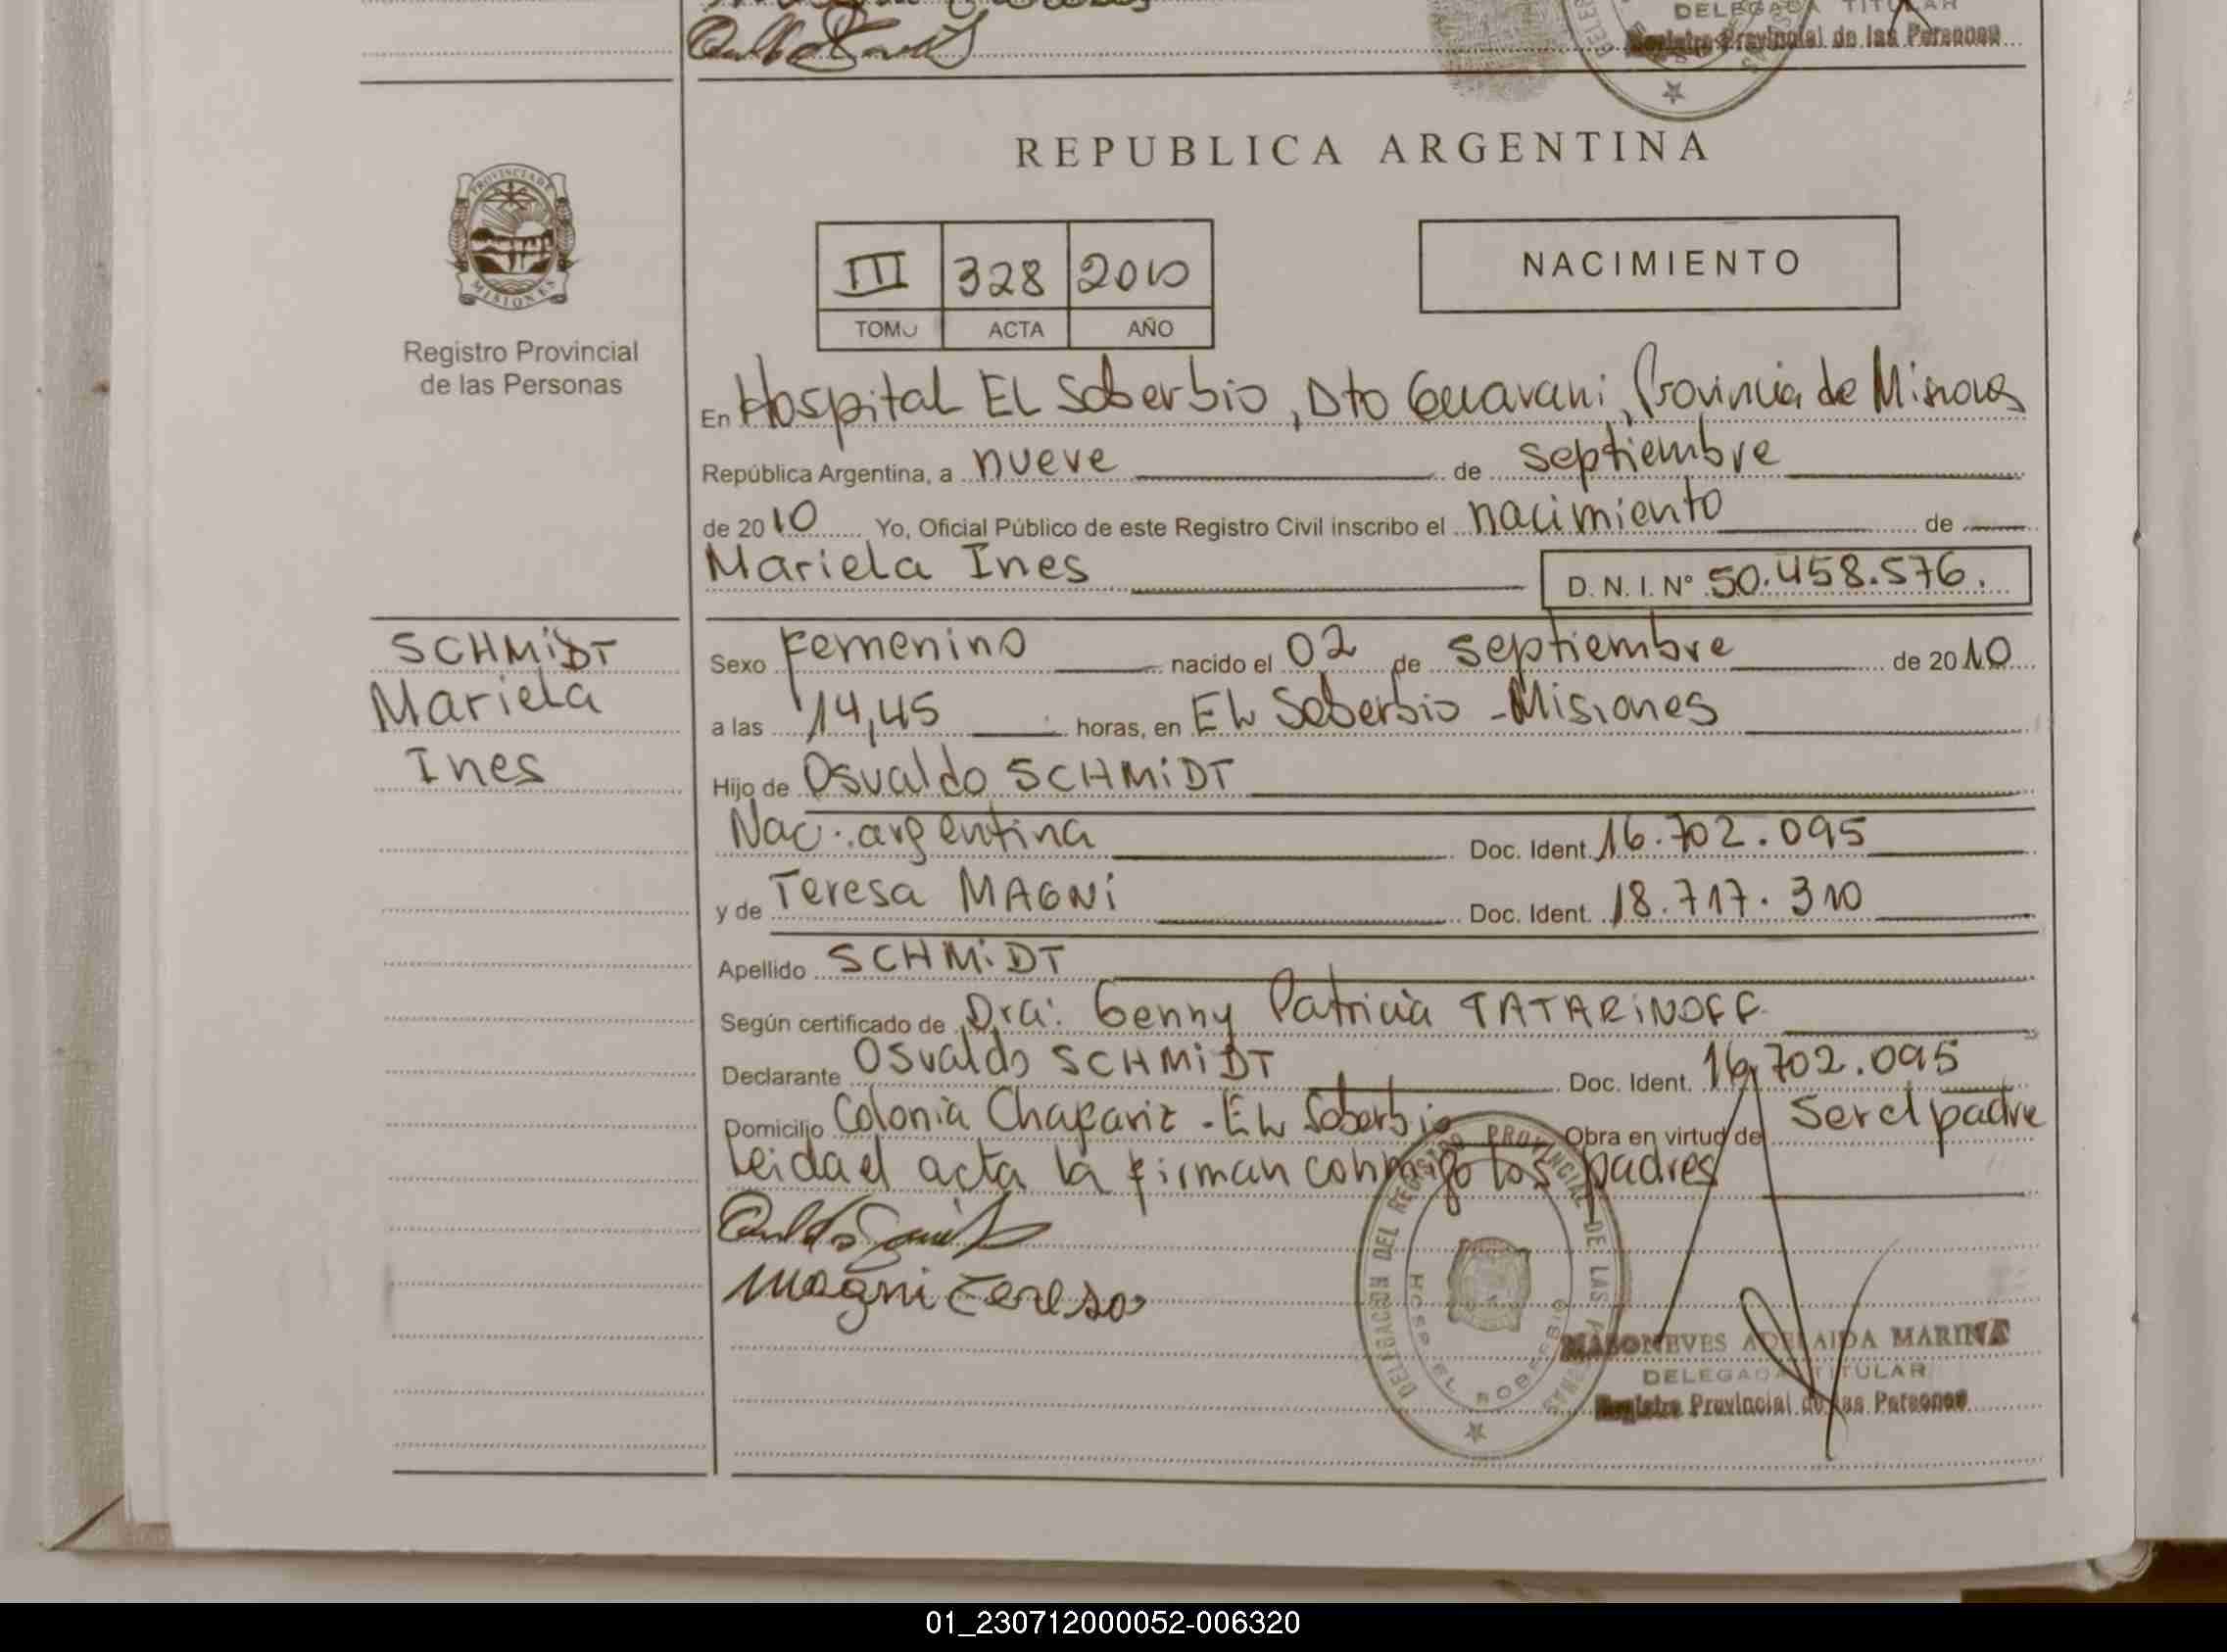 DELEGADA TITULAR
Registro Provincial de las Personas
REPUBLICA ARGENTINA
PROVINCIA DE
MISIONES
Registro Provincial
de las Personas
III 328 2010
TOMO ACTA AÑO
NACIMIENTO
En Hospital EL Soberbio, Dto Guarani, Provincia de Misiones
República Argentina, a nueve de septiembre
de 2010 Yo, Oficial Público de este Registro Civil inscribo el nacimiento de
Mariela Ines D. N. I. Nº 50.458.576.
SCHMiDT
Mariela
Ines
Sexo Femenino nacido el 02 de septiembre de 2010
a las 14,45 horas, en EL Soberbio - Misiones
Hijo de Osvaldo SCHMiDT
Nac. argentina Doc. Ident. 16.702.095
y de Teresa MAGNi Doc. Ident. 18.717.310
Apellido SCHMiDT
Según certificado de Dra: Genny Patricia TATARiNOFF
Declarante Osvaldo SCHMiDT Doc. Ident. 16.702.095
Domicilio Colonia Chafariz - EL Soberbio Obra en virtud de ser el padre
Leida el acta la firman conmigo los padres
Magni Teresa
DELEGACION DEL REGISTRO PROVINCIAL DE LAS PERSONAS
HOSP. EL SOBERBIO
MASONEVES ADELAIDA MARINA
DELEGADA TITULAR
Registro Provincial de las Personas
01_230712000052-006320